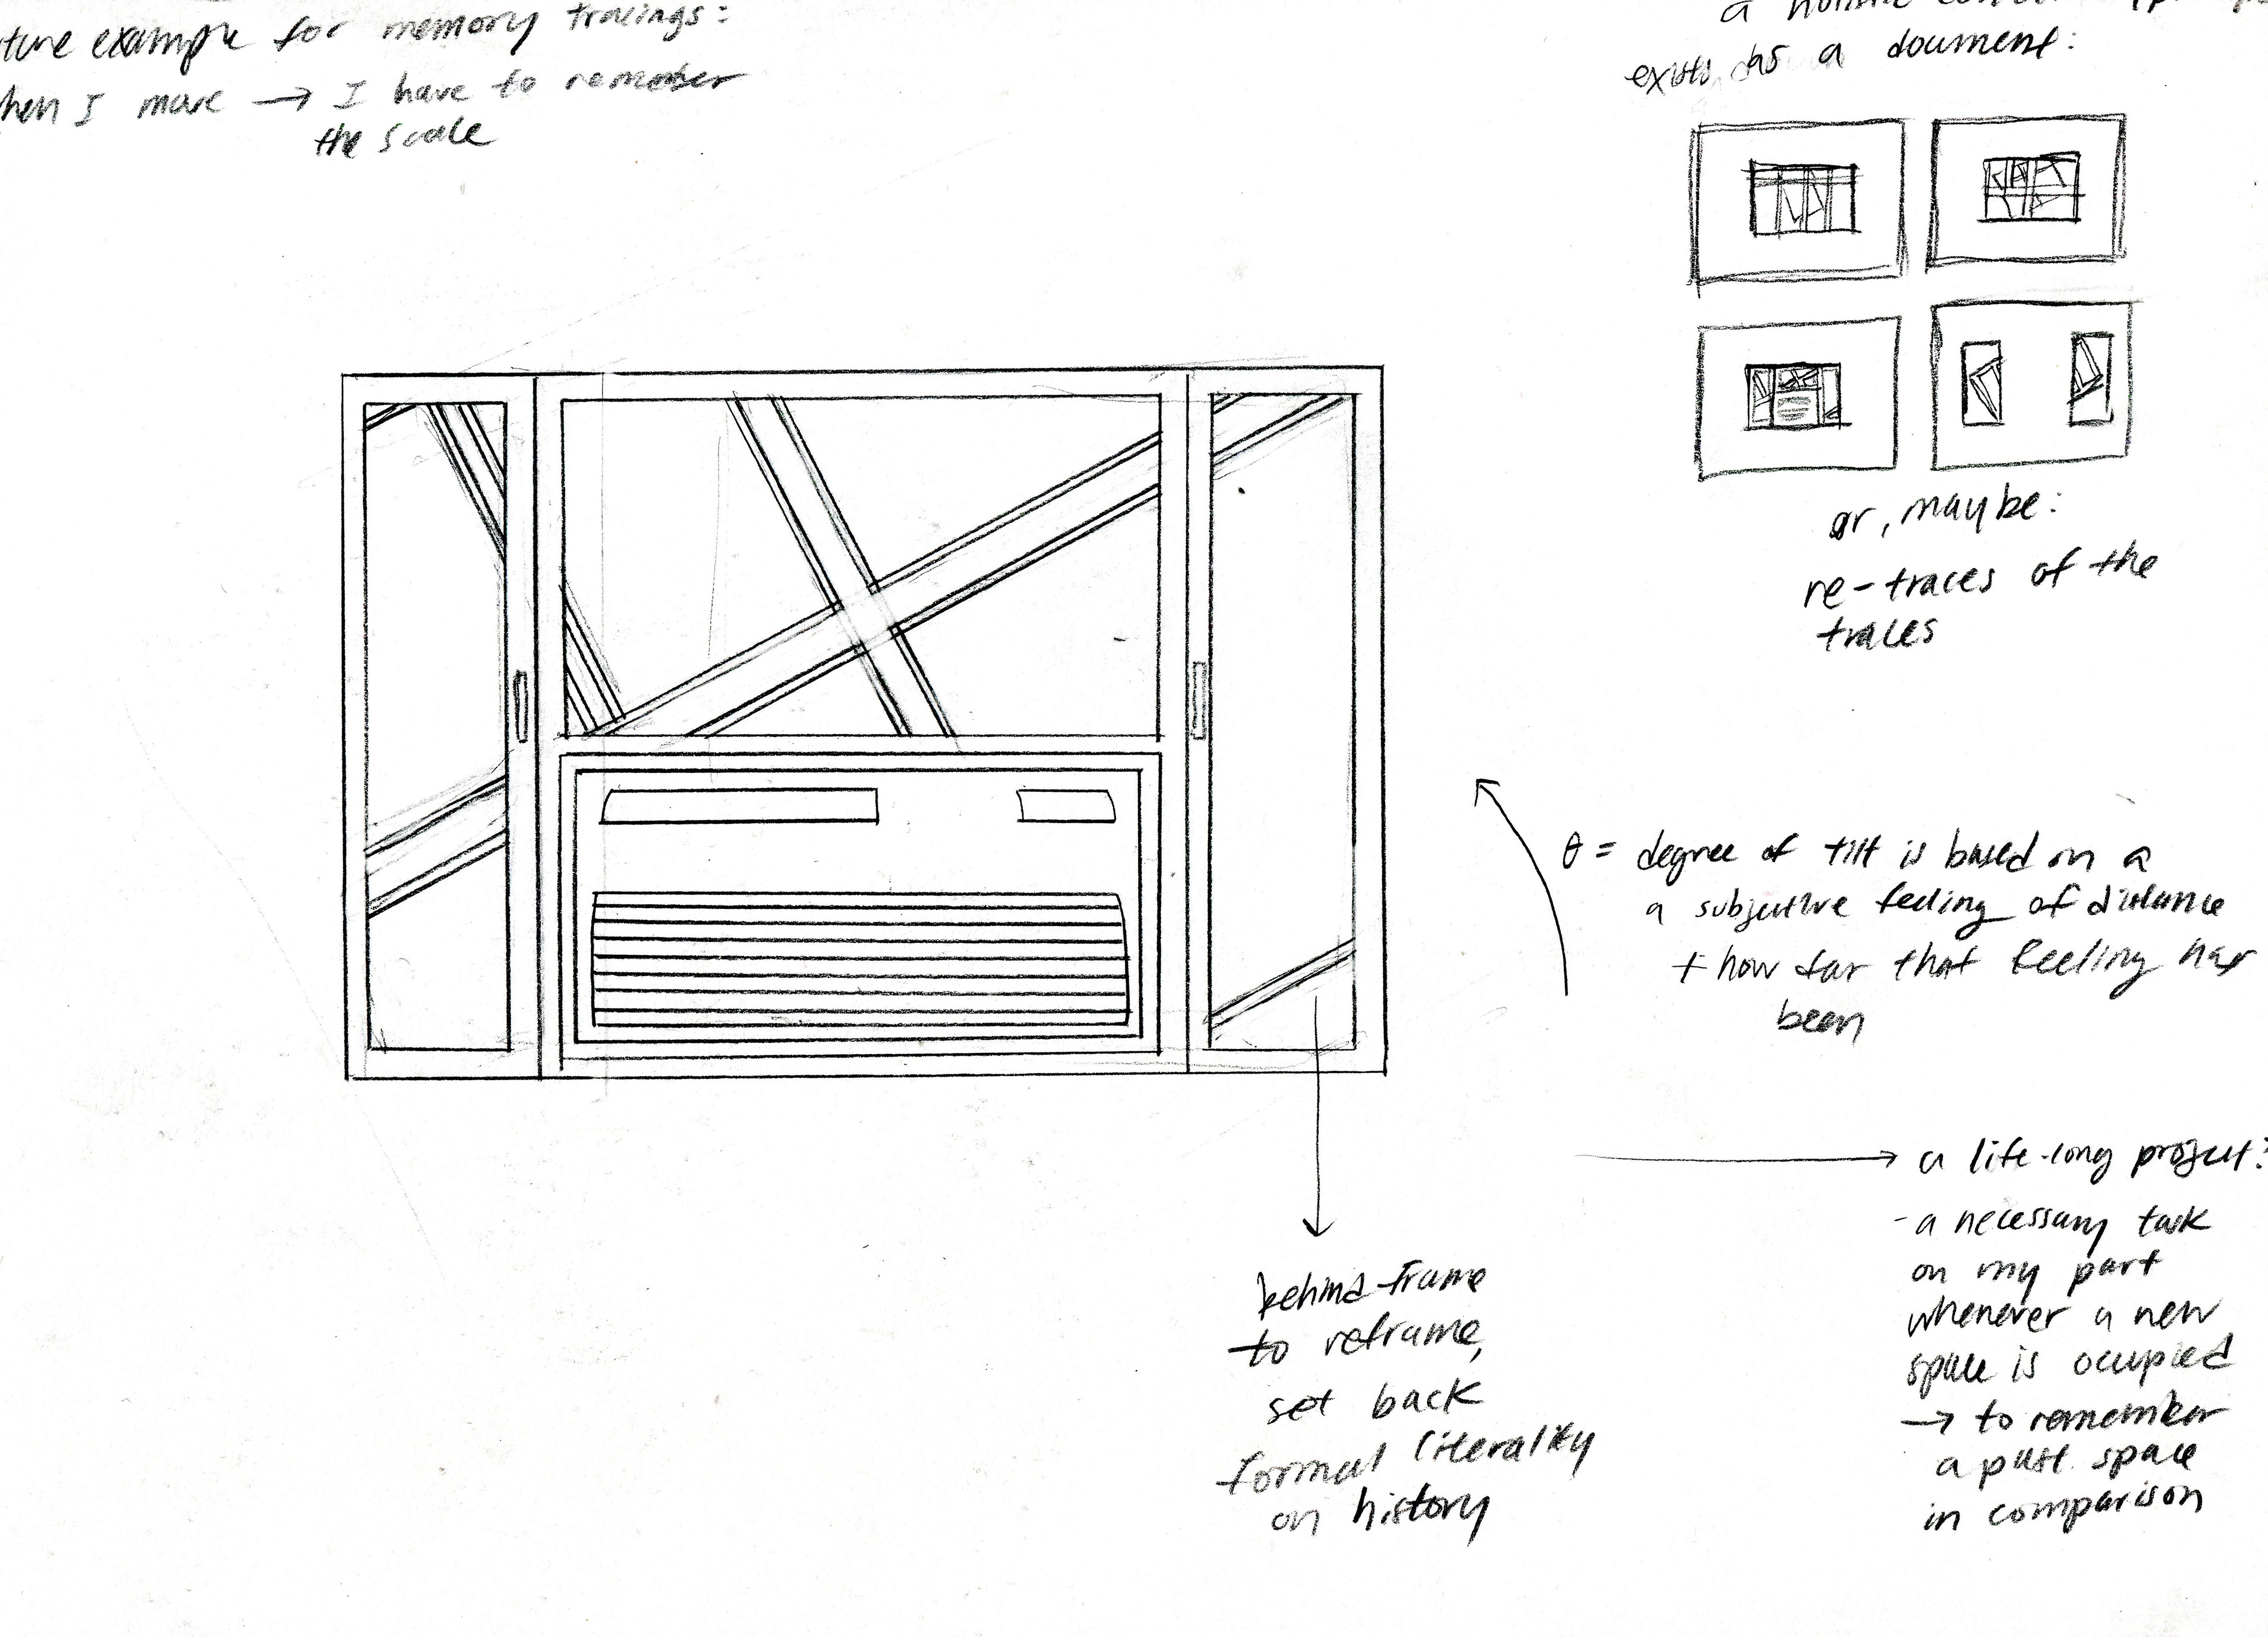 example for memory tracings:
I move → I have to remember
the scale
a holistic
exists as a document:
or, maybe:
re-traces of the
traces
θ = degree of tilt is based on a
a subjective feeling of distance
+ how far that feeling has
been
→ a life-long project?
- a necessary task
on my part
whenever a new
space is ocupied
→ to remember
a past space
in comparison
behind-frame
to reframe,
set back
formal literality
on history